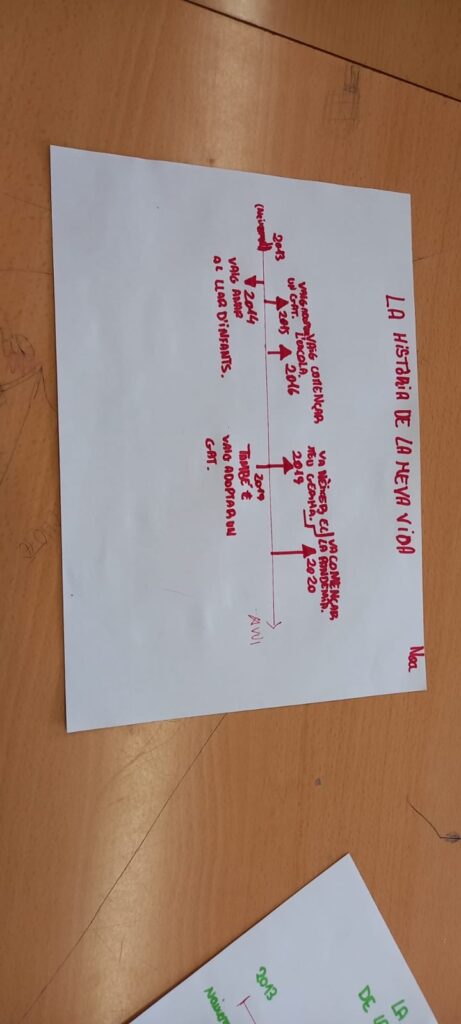 LA HISTÒRIA DE LA MEVA VIDA
Noa
VAIG COMENÇAR
L'ESCOLA.
UN GAT.
2015
2016
2013
2014
VAIG ANAR
AL LLAR D'INFANTS.
VA NÉIXER EL
MEU GERMÀ.
2019
VA COMENÇAR
LA PANDEMIA.
2020
2019
TAMBÉ
VAIG ADOPTAR UN
GAT.
AVUI
LA
DE L
2013